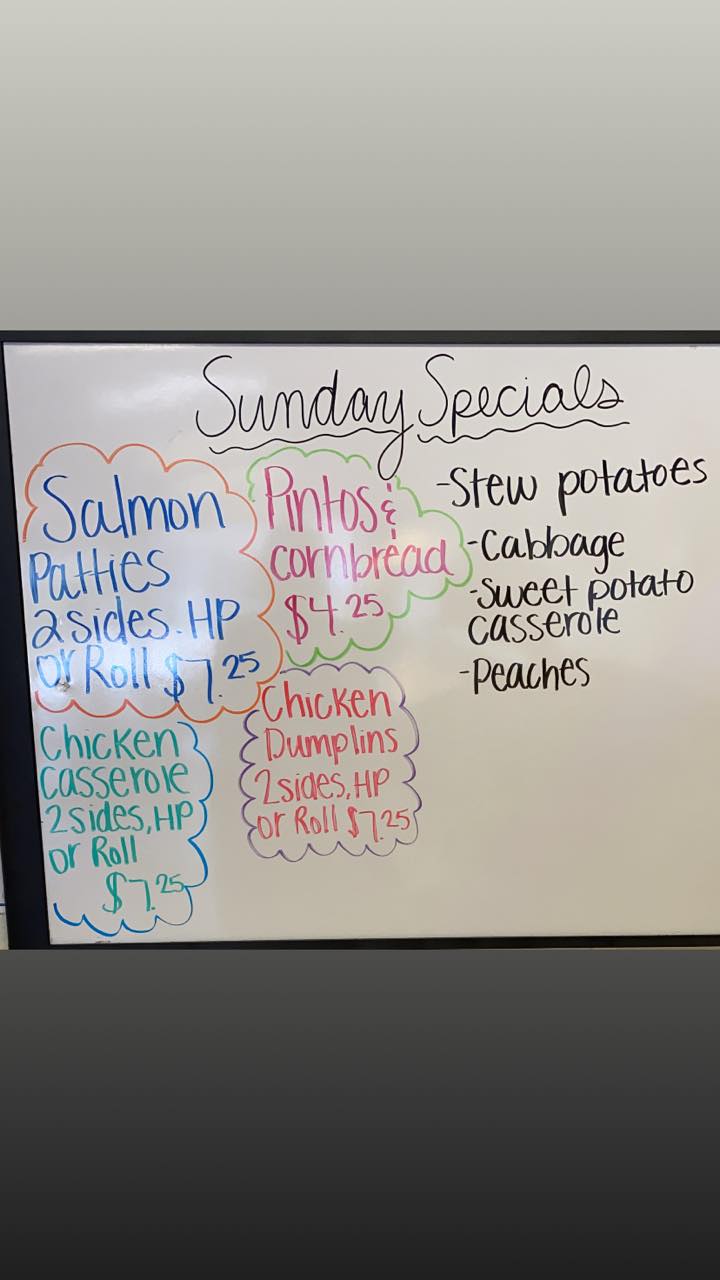 Sunday Specials
Salmon
Patties
2 sides. HP
or Roll $7.25
Pintos &
cornbread
$4.25
-Stew potatoes
-Cabbage
-Sweet potato
casserole
-Peaches
Chicken
Casserole
2 sides, HP
or Roll
$7.25
Chicken
Dumplins
2 sides, HP
or Roll $7.25